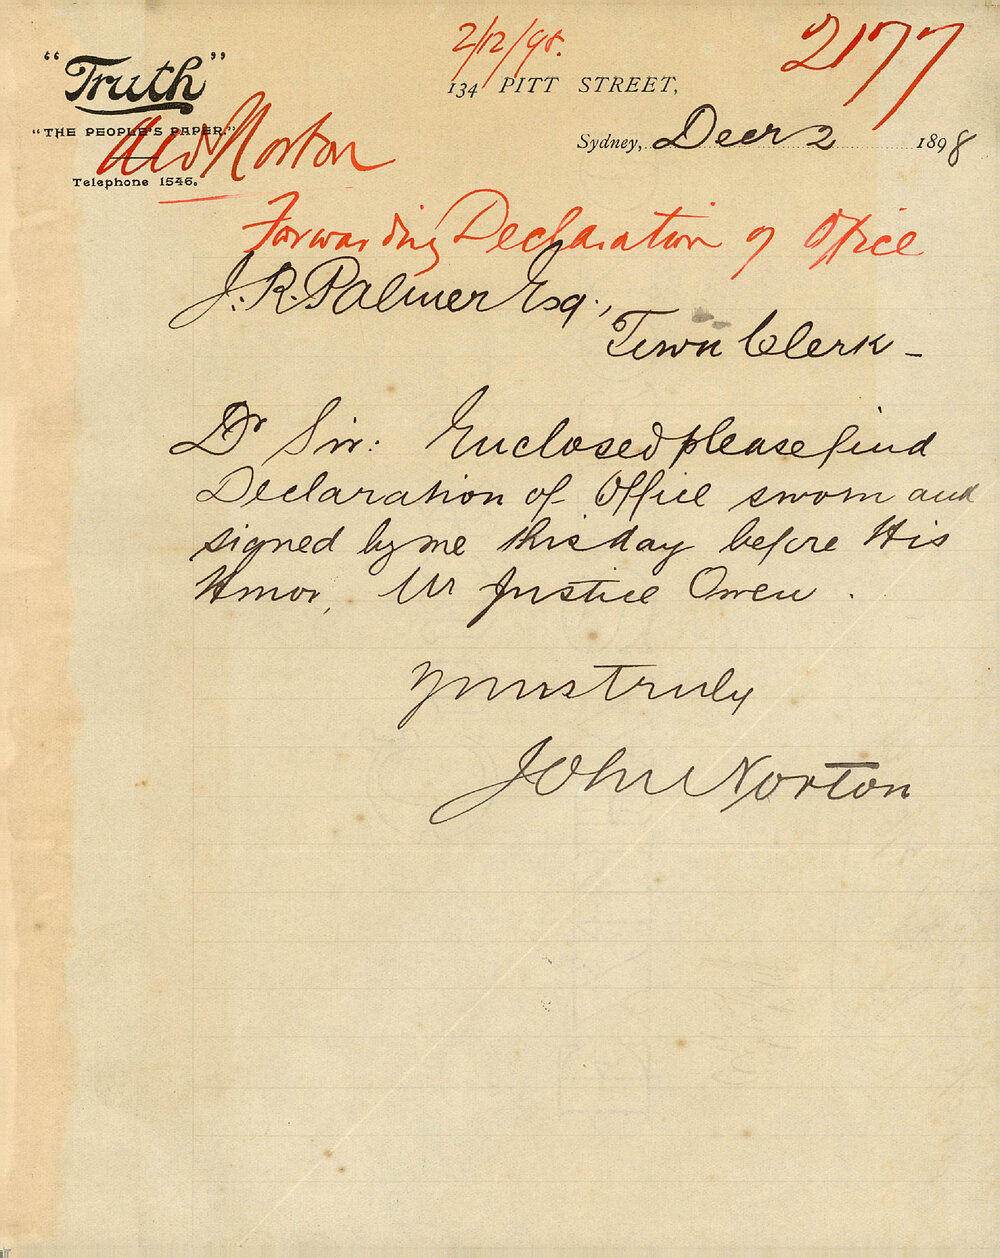 2/12/98.
2177
"Truth"
134 PITT STREET,
"THE PEOPLE'S PAPER."
Sydney, Decr 2 1898
Ald Norton
Telephone 1546.
Forwarding Declaration of Office
J. R. Palmer Esq.,
Town Clerk –
Dr Sir: Enclosed please find
Declaration of Office sworn and
signed by me this day before His
Honor, Mr Justice Owen.
Yours truly
John Norton